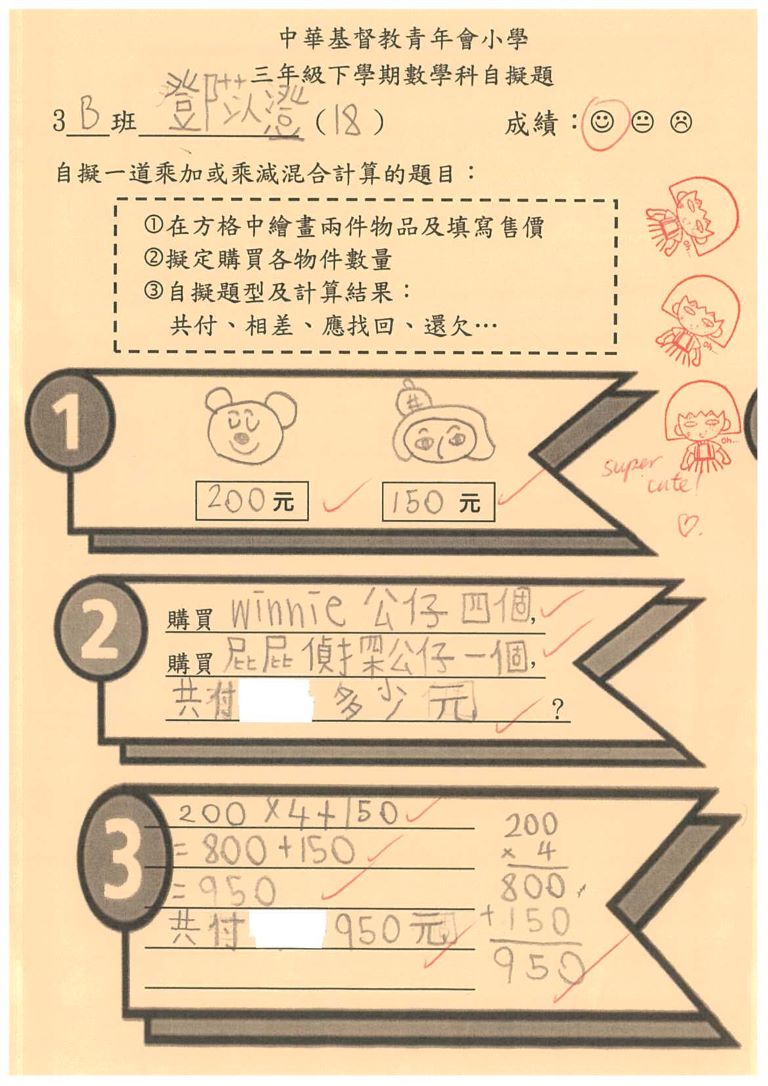 中華基督教青年會小學
三年級下學期數學科自擬題
3 B 班 鄧苡澄 (18) 成績：
自擬一道乘加或乘減混合計算的題目：
①在方格中繪畫兩件物品及填寫售價
②擬定購買各物件數量
③自擬題型及計算結果：
共付、相差、應找回、還欠…
1
200 元
150 元
oh...
oh...
oh...
super
cute!
2
購買 winnie 公仔四個，
購買 屁屁偵探公仔一個，
共付 多少元 ?
3
200 × 4 + 150
= 800 + 150
= 950
共付 950 元
200
× 4
800
+ 150
950